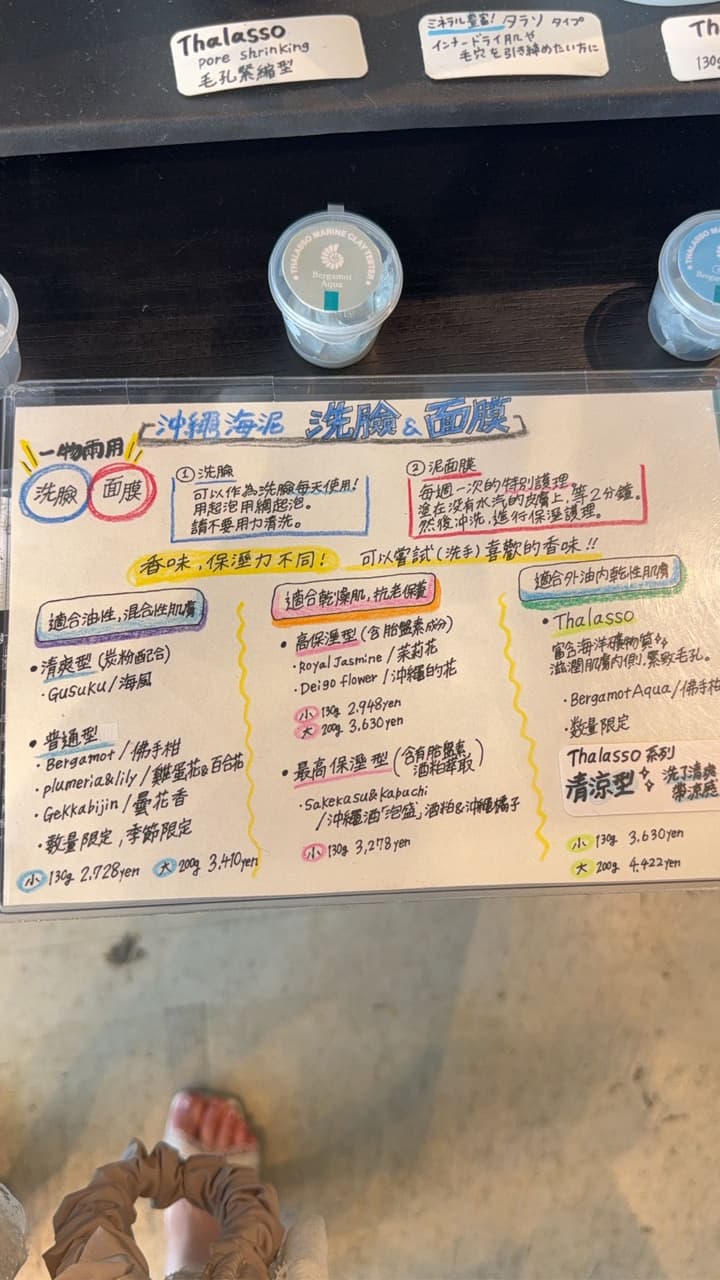 Thalasso
pore shrinking
毛孔緊縮型
ミネラル豊富! タラソ タイプ
インナードライ肌や
毛穴を引き締めたい方に
Th
130g
THALASSO MARINE CLAY TESTER
Bergamot
Aqua
沖繩海泥 洗臉&面膜
一物兩用
洗臉 面膜
① 洗臉
可以作為洗臉每天使用!
用起泡用網起泡。
請不要用力清洗。
② 泥面膜
每週一次的特別護理
塗在沒有水汽的皮膚上,等2分鐘。
然後沖洗,進行保溼護理。
香味,保溼力不同! 可以嘗試(洗手)喜歡的香味!!
適合油性,混合性肌膚
•清爽型(炭粉配合)
・Gusuku/海風
•普通型
・Bergamot/佛手柑
・plumeria&lily/雞蛋花&百合花
・Gekkabijin/曇花香
・數量限定,季節限定
小 130g 2.728yen 大 200g 3.410yen
適合乾燥肌,抗老保養
•高保溼型(含胎盤素成分)
・Royal Jasmine/茉莉花
・Deigo flower/沖繩的花
小 130g 2.948yen
大 200g 3.630yen
•最高保溼型(含有胎盤素,酒粕萃取)
・sakekasu&kabachi
/沖繩酒「泡盛」酒粕&沖繩橘子
小 130g 3,278yen
適合外油內乾性肌膚
•Thalasso
富含海洋礦物質
滋潤肌膚內側,緊致毛孔。
・Bergamot Aqua/佛手柑
・數量限定
Thalasso 系列
清涼型 洗了清爽
帶涼感
小 130g 3.630yen
大 200g 4.422yen